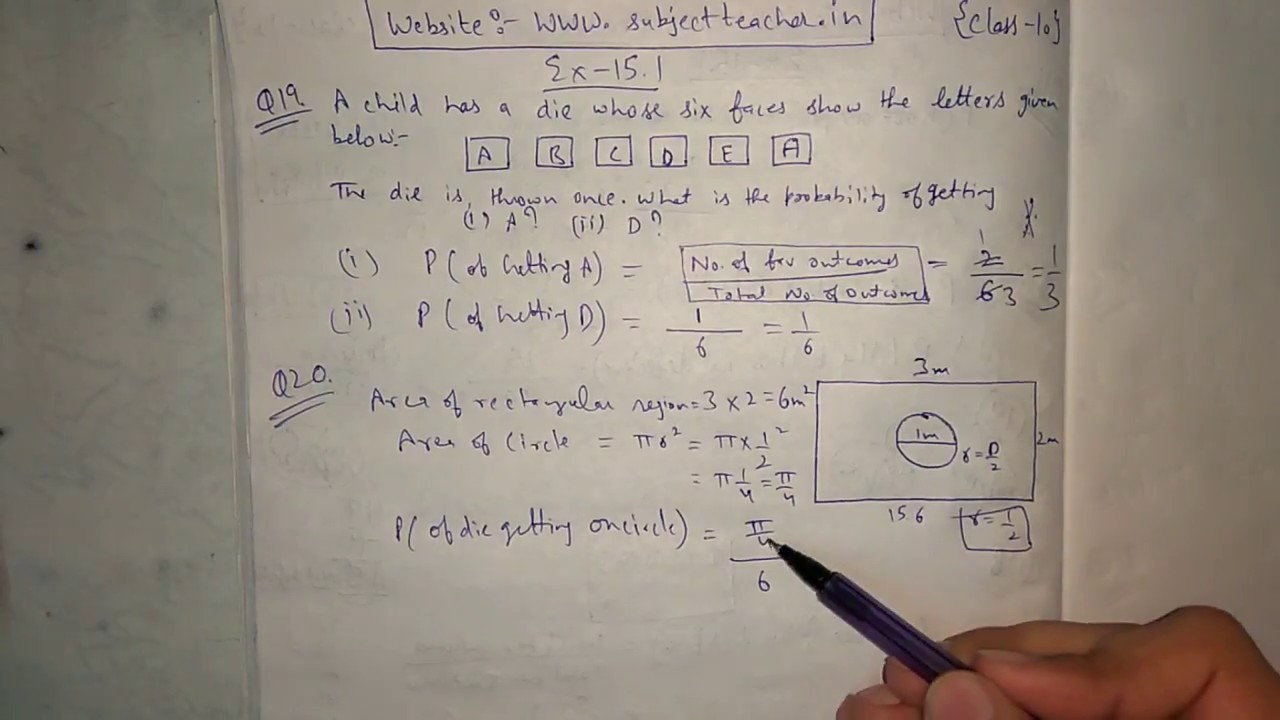 Website:- www.subjectteacher.in
{Class-10}
Ex-15.1
Q19. A child has a die whose six faces show the letters given
below:-
A B C D E A
The die is thrown once. What is the probability of getting
(i) A? (ii) D?
(i) P(of Getting A) = No. of fav outcomes / Total No. of outcomes = 2/6 = 1/3
1 3
(ii) P(of Getting D) = 1/6 = 1/6
Q20.
3m
Area of rectangular region = 3 × 2 = 6m²
Area of Circle = πr² = π × 1²/2
1m
r = D/2
2m
= π 1/4 = π/4
15.6
r = 1/2
P(of die getting on circle) = π/4 / 6